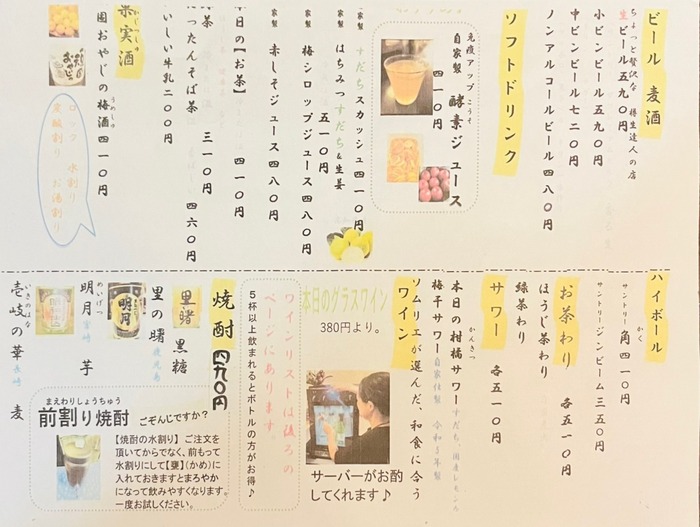 ビール 麦酒
ちょっと贅沢な 樽生達人の店
生ビール五九〇円
小ビンビール 五九〇円
中ビンビール 七二〇円
ノンアルコールビール 四八〇円
ソフトドリンク
免疫アップ
自家製 酵素ジュース
こうそ
四一〇円
家製 すだちスカッシュ 四一〇円
家製 はちみつすだち&生姜
五一〇円
家製 梅シロップジュース 四八〇円
家製 赤しそジュース 四八〇円
本日の【お茶】 四一〇円
緑茶 三一〇円
ったんそば茶 四六〇円
いしい牛乳 二〇〇円
果実酒
かじつしゅ
園おやじの梅酒 四一〇円
うめしゅ
ロック 水割り
炭酸割り お湯割り
ハイボール
サントリー 角 四一〇円
かく
サントリー ジンビーム 三五〇円
お茶わり 各五一〇円
ほうじ茶わり
緑茶わり
サワー 各五一〇円
本日の柑橘サワー
かんきつ
すだち、国産レモン
梅干サワー 自家製 令和3年製
ワイン
ソムリエが選んだ、和食に合う
本日のグラスワイン
380円より。
サーバーがお酌
してくれます♪
ワインリストは後ろの
ページにあります。
5杯以上飲まれるとボトルの方がお得♪
焼酎 四九〇円
里の曙 黒糖
鹿児島
里曙
明月 芋
めいげつ
宮崎
明月
壱岐の華 麦
いきのはな
長崎
まえわりしょうちゅう
前割り焼酎 ごぞんじですか?
【焼酎の水割り】ご注文を
頂いてからでなく、前もって
水割りにして【甕】(かめ)に
入れておきますとまろやか
になって飲みやすくなります。
一度お試しください。